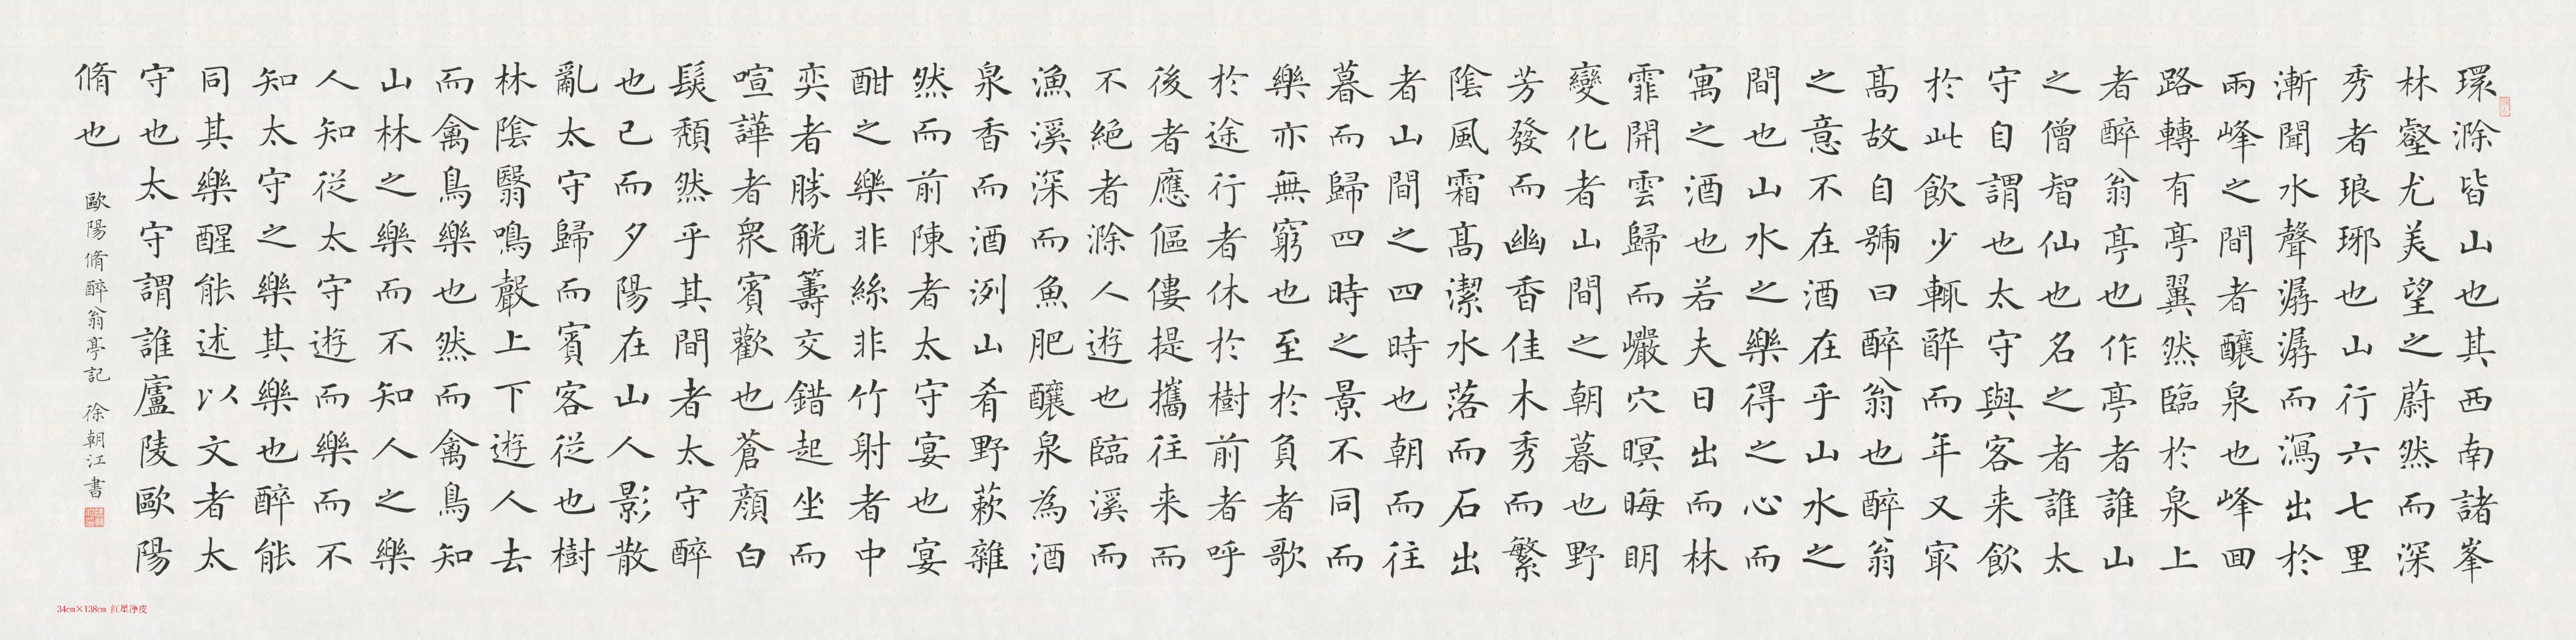 環滁皆山也其西南諸峯
林壑尤美望之蔚然而深
秀者琅琊也山行六七里
漸聞水聲潺潺而瀉出於
兩峰之間者釀泉也峰回
路轉有亭翼然臨於泉上
者醉翁亭也作亭者誰山
之僧智仙也名之者誰太
守自謂也太守與客来飲
於此飲少輒醉而年又冣
髙故自號曰醉翁也醉翁
之意不在酒在乎山水之
間也山水之樂得之心而
寓之酒也若夫日出而林
霏開雲歸而巖穴暝晦明
變化者山間之朝暮也野
芳發而幽香佳木秀而繁
陰風霜髙潔水落而石出
者山間之四時也朝而往
暮而歸四時之景不同而
樂亦無窮也至於負者歌
於途行者休於樹前者呼
後者應傴僂提攜往来而
不絕者滁人遊也臨溪而
漁溪深而魚肥釀泉為酒
泉香而酒洌山肴野蔌雜
然而前陳者太守宴也宴
酣之樂非絲非竹射者中
奕者勝觥籌交錯起坐而
喧譁者衆賓歡也蒼顏白
髮頹然乎其間者太守醉
也已而夕陽在山人影散
亂太守歸而賓客從也樹
林陰翳鳴聲上下遊人去
而禽鳥樂也然而禽鳥知
山林之樂而不知人之樂
人知從太守遊而樂而不
知太守之樂其樂也醉能
同其樂醒能述以文者太
守也太守謂誰廬陵歐陽
脩也
歐陽脩醉翁亭記 徐朝江書
34cm×138cm 紅星净皮